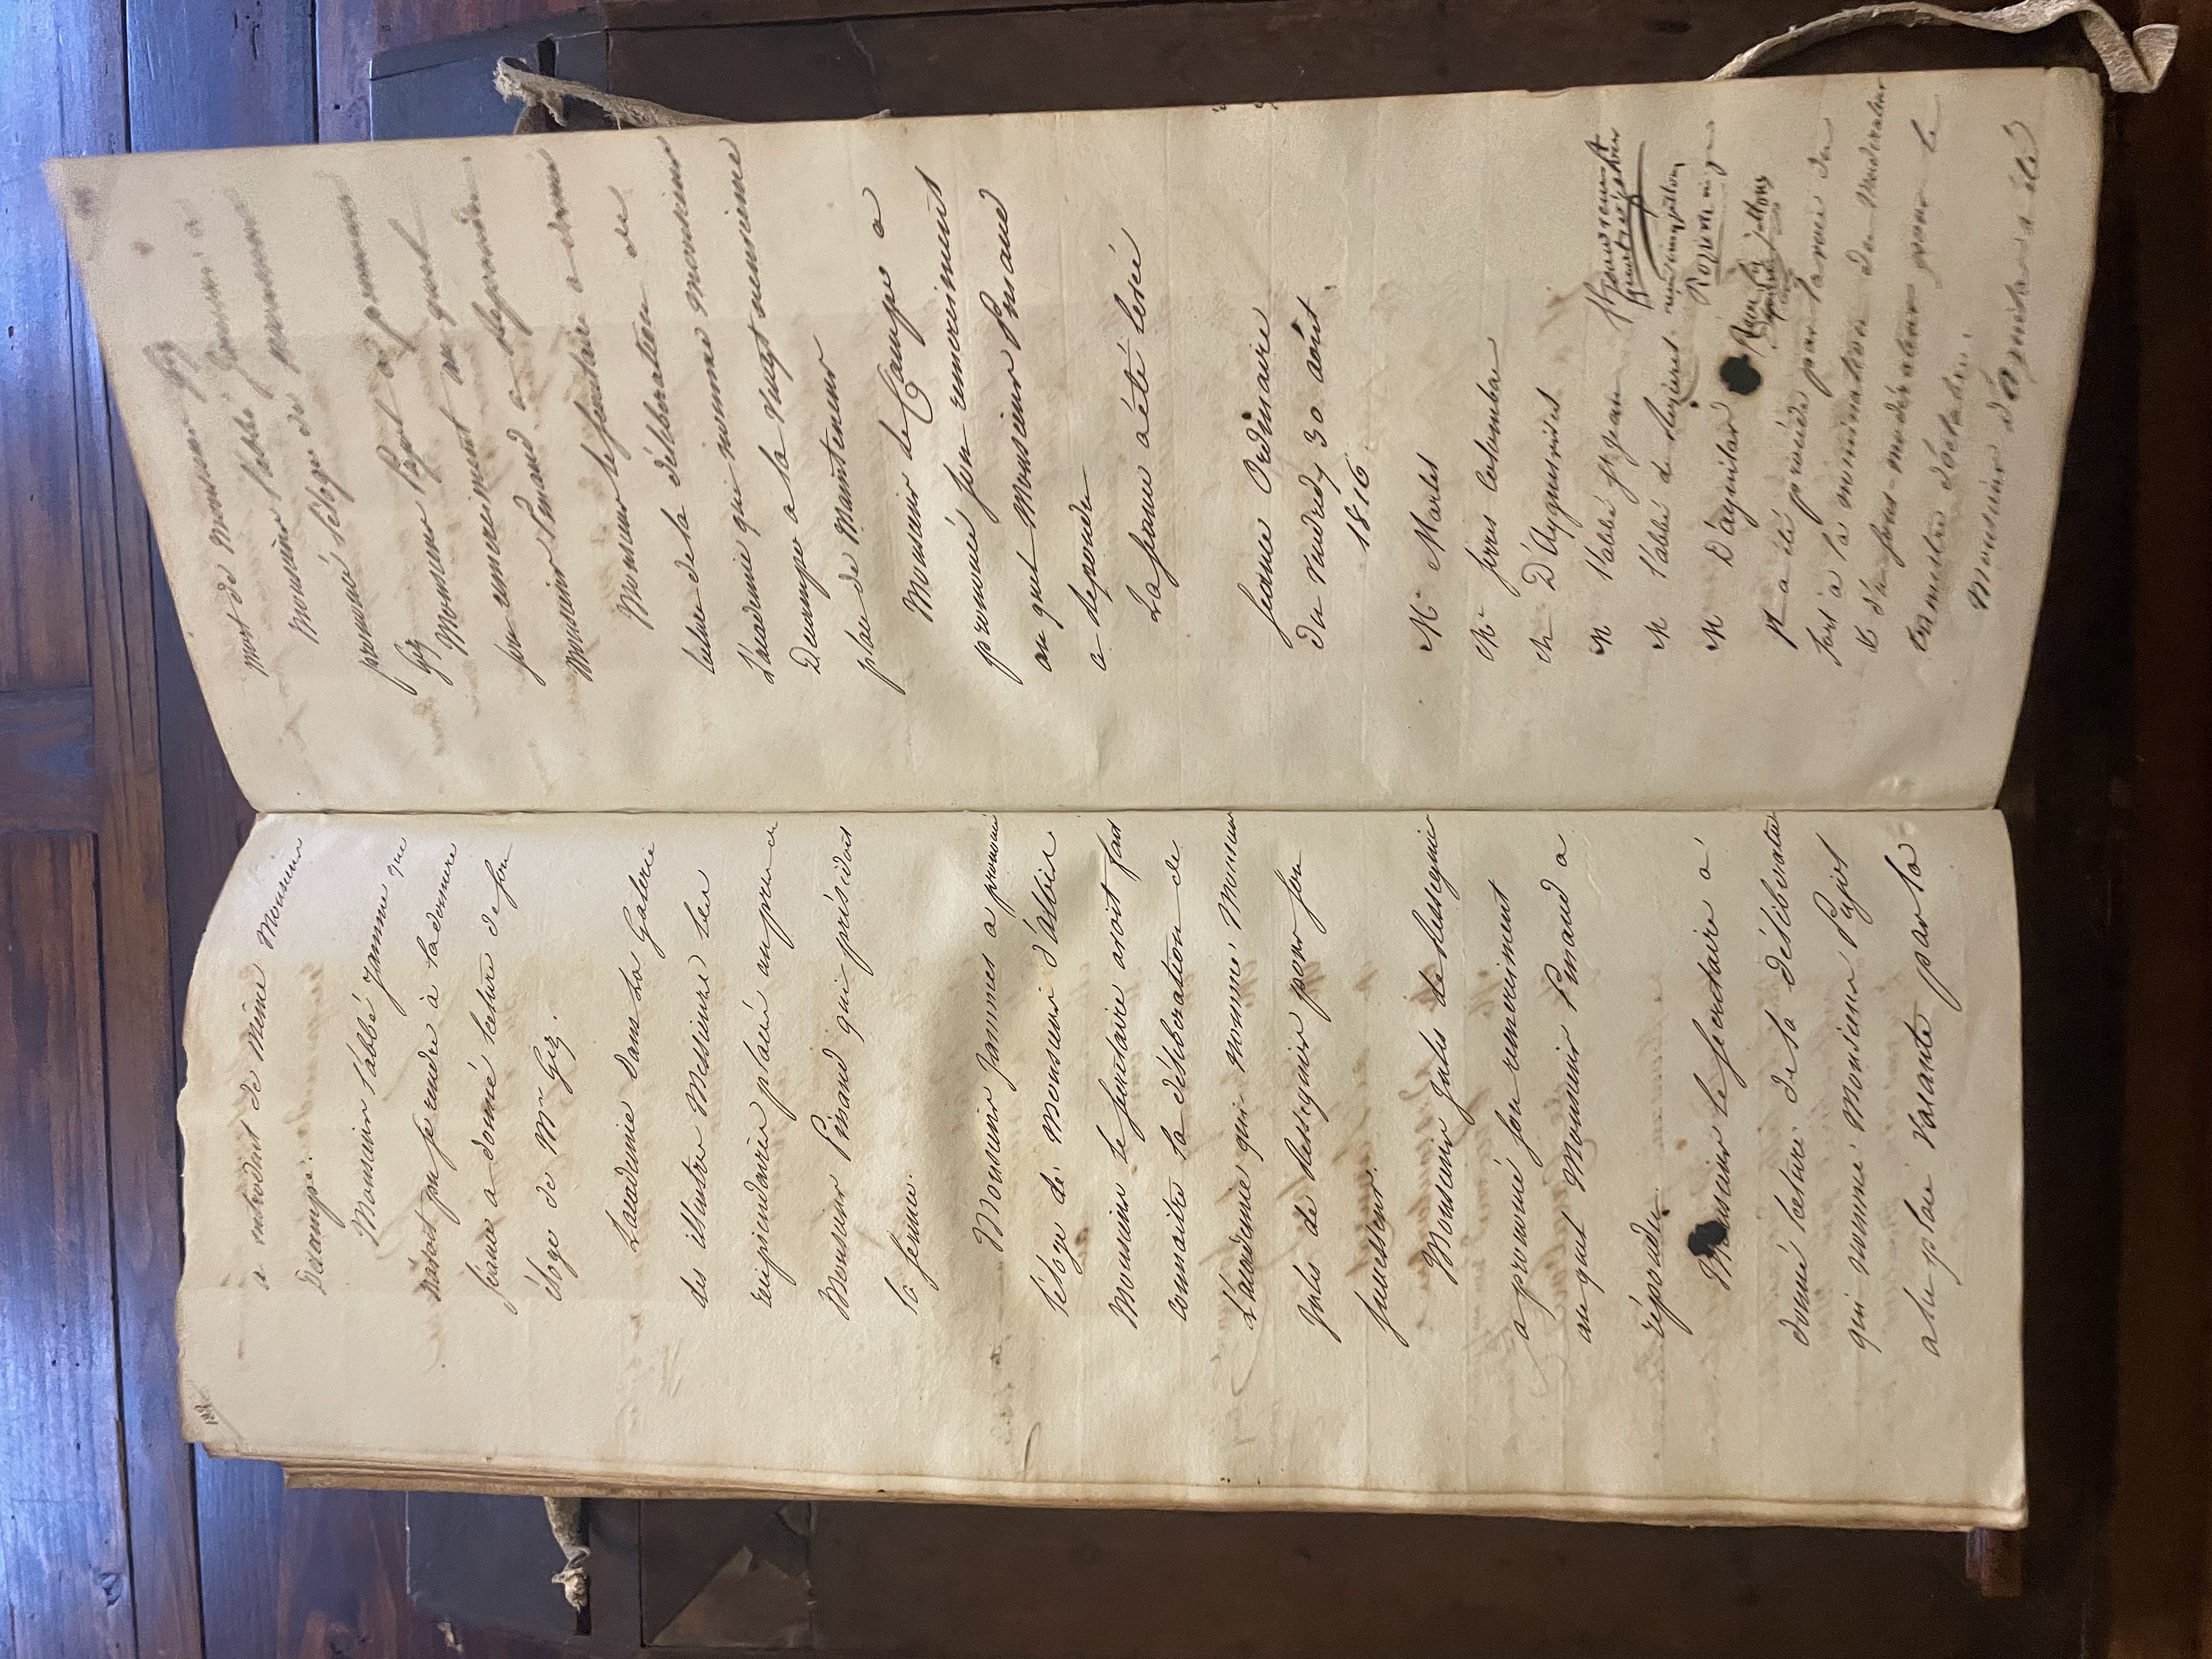 122
a introduit de même Monsieur
Decampe.
Monsieur l'abbé Jamme qui
n'avoit pu se rendre à la derniere
séance a donné lecture de son
éloge de Mr Gez.
L'academie dans la Galerie
des illustres Messieurs les
recipiendaires placés auprès de
Monsieur Pinaud qui présidoit
la séance.
Monsieur Jammes a prononcé
l'éloge de Monsieur d'albis
Monsieur le secretaire avoit fait
connaitre la déliberation de
L'academie qui nomme Monsieur
Jules de Ressegnier pour son
successeur.
Monsieur Jules de Ressegnier
a prononcé son remerciment
au quel Monsieur Pinaud a
répondu.
Monsieur le secretaire a
donné lecture de la déliberation
qui nomme Monsieur Pujol
a la place vacante par la
mort de Monsieur Gez
Monsieur l'abbé Jamme a
prononcé l'éloge de Monsieur
Gez
Monsieur Pujol a prononcé
son remerciment au quel
Monsieur Pinaud a repondu
Monsieur le secretaire a donné
lecture de la déliberation de
L'academie qui nomme Monsieur
Decampe a la vingt neuvieme
place de Mainteneur
Monsieur de Campe a
prononcé son remerciment
au quel Monsieur Pinaud
a repondu
La séance a été levée
Seance Ordinaire
du vendredy 30 août
1816.
Mr Martes
Mr serres Colombar
Mr D'Ayguesvives
M l'abbé St Jean
M l'abbé de Rozieres
M D'aguilar
Il a été procédé par la voie du
sort à la nomination du Moderateur
et du sous-moderateur pour le
trimestre d'octobre.
Monsieur d'Aguilar a été